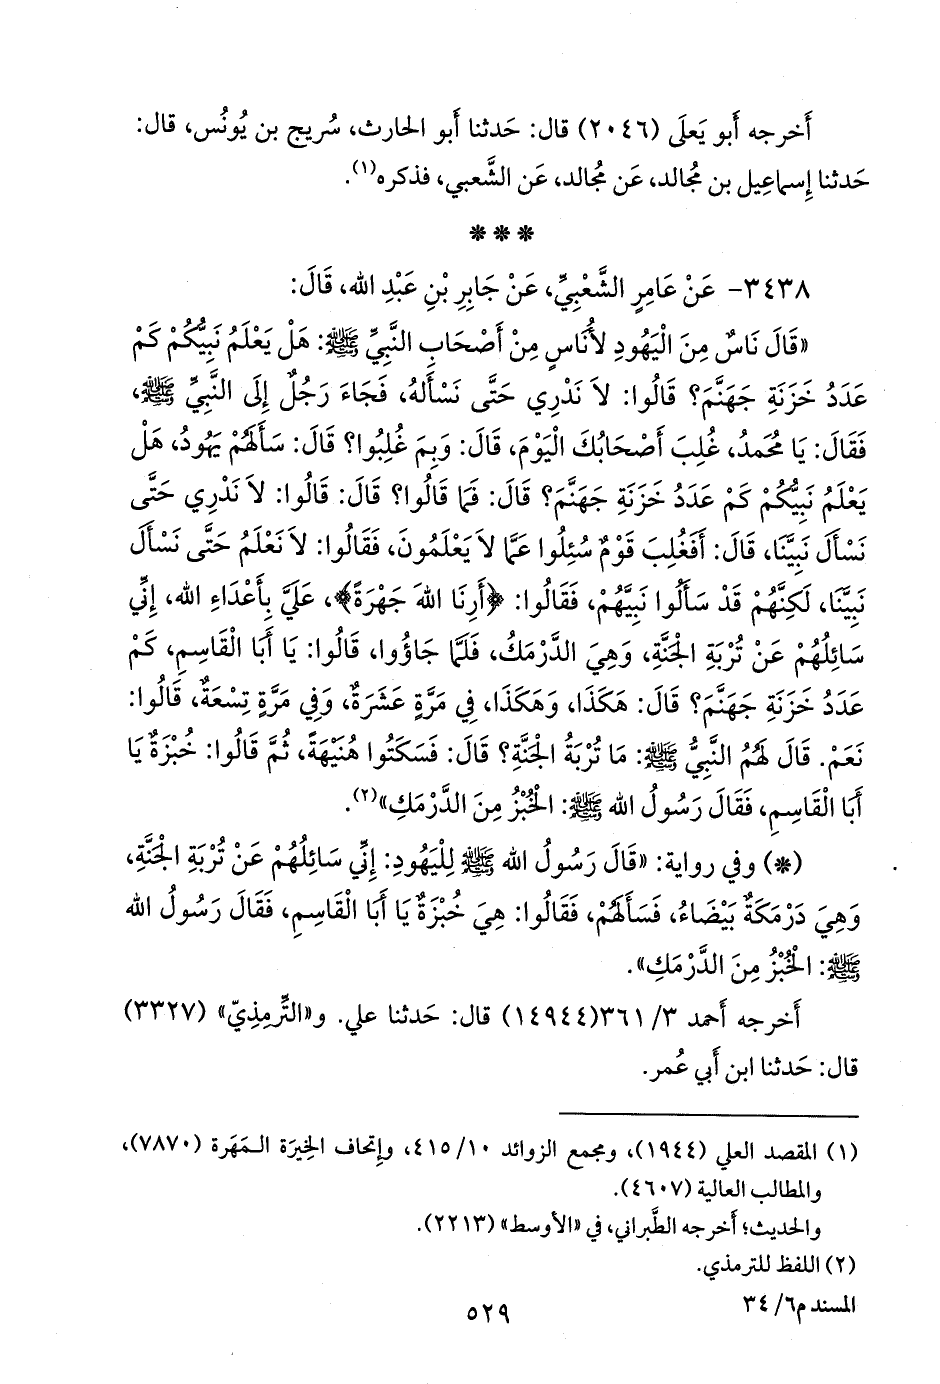 أَخرجه أَبو يَعلَى (٢٠٤٦) قال: حَدثنا أَبو الحارث، سُريج بن يُونُس، قال:
حَدثنا إِسماعِيل بن مُجالد، عَن مُجالد، عَن الشَّعبي، فذكره(١).
* * *
٣٤٣٨- عَنْ عَامِرٍ الشَّعْبِيِّ، عَنْ جَابِرِ بْنِ عَبْدِ الله، قَالَ:
«قَالَ نَاسٌ مِنَ الْيَهُودِ لأُنَاسٍ مِنْ أَصْحَابِ النَّبِيِّ ﷺ: هَلْ يَعْلَمُ نَبِيُّكُمْ كَمْ
عَدَدُ خَزَنَةِ جَهَنَّمَ؟ قَالُوا: لاَ نَدْرِي حَتَّى نَسْأَلَهُ، فَجَاءَ رَجُلٌ إِلَى النَّبِيِّ ﷺ،
فَقَالَ: يَا مُحَمدُ، غُلِبَ أَصْحَابُكَ الْيَوْمَ، قَالَ: وَبِمَ غُلِبُوا؟ قَالَ: سَأَلَهُمْ يَهُودُ، هَلْ
يَعْلَمُ نَبِيُّكُمْ كَمْ عَدَدُ خَزَنَةِ جَهَنَّمَ؟ قَالَ: فَمَا قَالُوا؟ قَالَ: قَالُوا: لاَ نَدْرِي حَتَّى
نَسْأَلَ نَبِيَّنَا، قَالَ: أَفَغُلِبَ قَوْمٌ سُئِلُوا عَمَّا لاَ يَعْلَمُونَ، فَقَالُوا: لاَ نَعْلَمُ حَتَّى نَسْأَلَ
نَبِيَّنَا، لَكِنَّهُمْ قَدْ سَأَلُوا نَبِيَّهُمْ، فَقَالُوا: ﴿أَرِنَا اللهَ جَهْرَةً﴾، عَلَيَّ بِأَعْدَاءِ الله، إِنِّي
سَائِلُهُمْ عَنْ تُرْبَةِ الْجَنَّةِ، وَهِيَ الدَّرْمَكُ، فَلَمَّا جَاؤُوا، قَالُوا: يَا أَبَا الْقَاسِمِ، كَمْ
عَدَدُ خَزَنَةِ جَهَنَّمَ؟ قَالَ: هَكَذَا، وَهَكَذَا، فِي مَرَّةٍ عَشَرَةٌ، وَفِي مَرَّةٍ تِسْعَةٌ، قَالُوا:
نَعَمْ. قَالَ لَهُمُ النَّبِيُّ ﷺ: مَا تُرْبَةُ الْجَنَّةِ؟ قَالَ: فَسَكَتُوا هُنَيْهَةً، ثُمَّ قَالُوا: خُبْزَةٌ يَا
أَبَا الْقَاسِمِ، فَقَالَ رَسُولُ الله ﷺ: الْخُبْزُ مِنَ الدَّرْمَكِ»(٢).
(*) وفي رواية: «قَالَ رَسُولُ الله ﷺ لِلْيَهُودِ: إِنِّي سَائِلُهُمْ عَنْ تُرْبَةِ الْجَنَّةِ،
وَهِيَ دَرْمَكَةٌ بَيْضَاءُ، فَسَأَلَهُمْ، فَقَالُوا: هِيَ خُبْزَةٌ يَا أَبَا الْقَاسِمِ، فَقَالَ رَسُولُ الله
ﷺ: الْخُبْزُ مِنَ الدَّرْمَكِ».
أَخرجه أَحمد ٣/ ٣٦١(١٤٩٤٤) قال: حَدثنا علي. و«التِّرمِذيّ» (٣٣٢٧)
قال: حَدثنا ابن أَبي عُمر.
(١) المقصد العلي (١٩٤٤)، ومجمع الزوائد ١٠/ ٤١٥، وإتحاف الخِيرَة الـمَهَرة (٧٨٧٠)،
والمطالب العالية (٤٦٠٧).
والحديث؛ أَخرجه الطَّبراني، في «الأوسط» (٢٢١٣).
(٢) اللفظ للترمذي.
المسند م٦/ ٣٤
٥٢٩